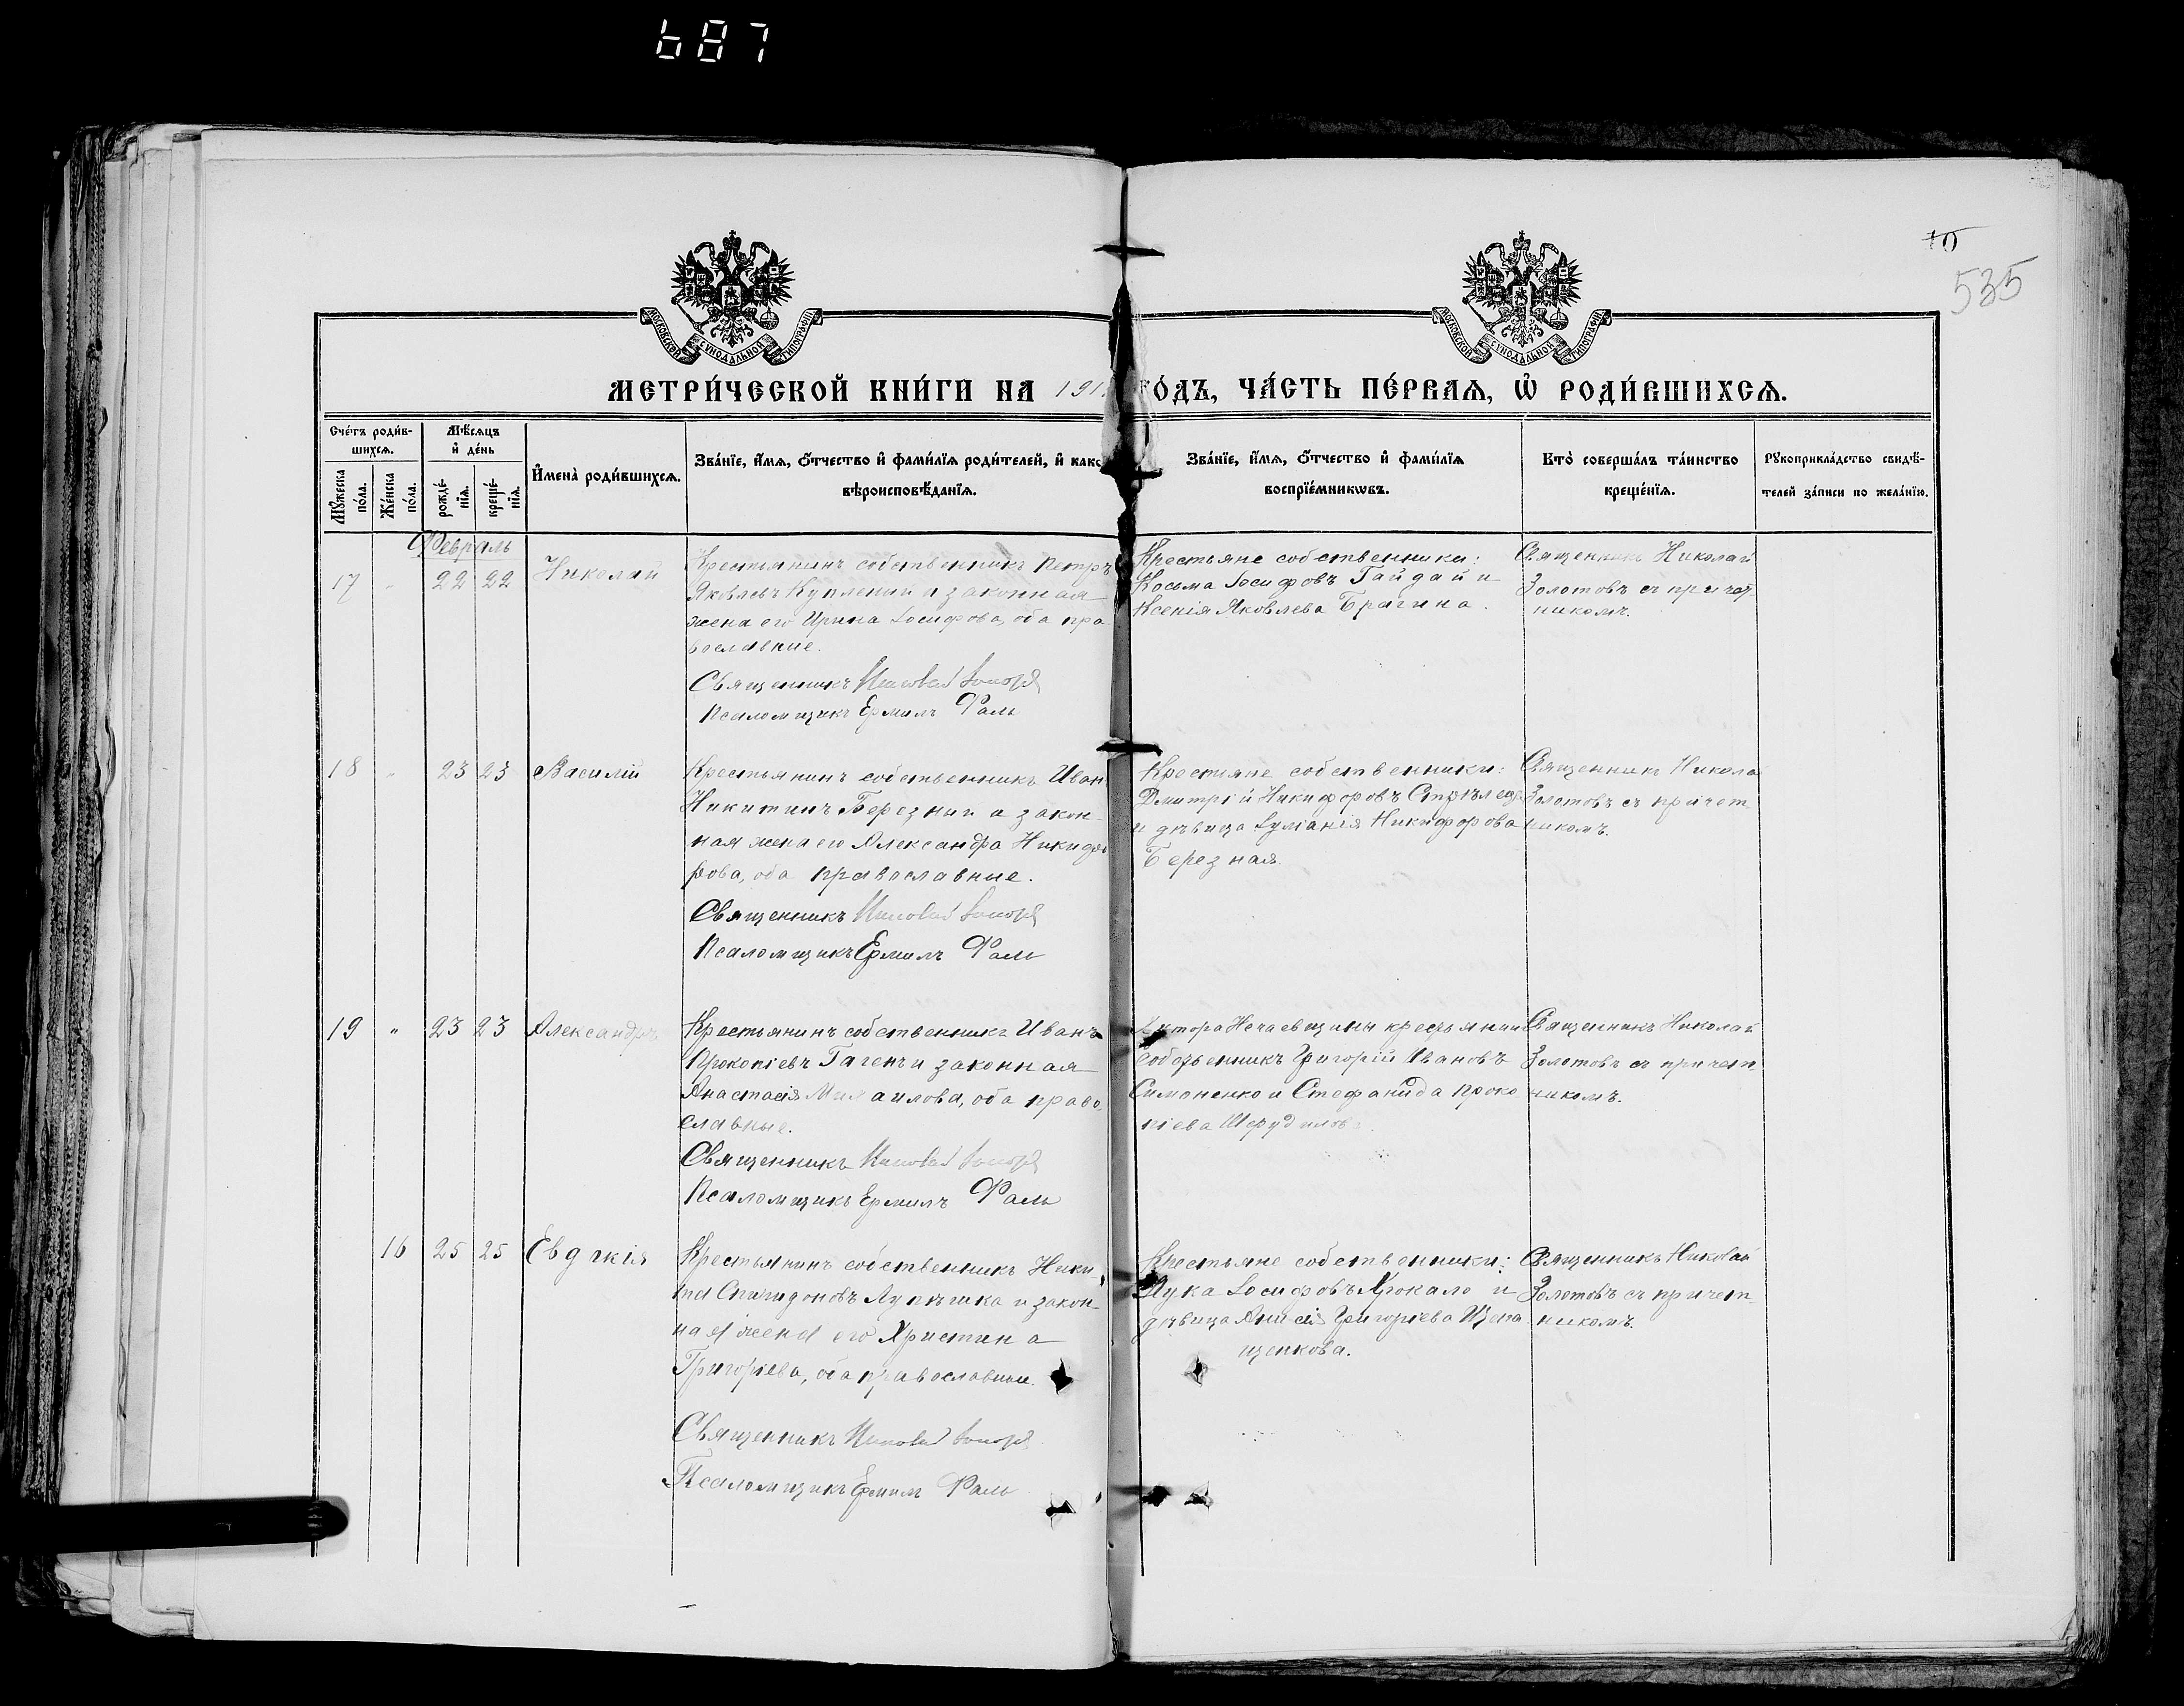 687
10
535
МОСКОВСКОЙ СѴНОДАЛЬНОЙ ТИПОГРАФІИ
МОСКОВСКОЙ СѴНОДАЛЬНОЙ ТИПОГРАФІИ
МЕТРИ́ЧЕСКОЙ КНИ́ГИ НА 191 ГО́ДЪ, ЧА́СТЬ ПЕ́РВАѦ, Ѽ РОДИ́ВШИХСѦ.
Сче́тъ роди́в-
шихсѧ.
Мꙋ́жеска по́ла.
Же́нска по́ла.
Мѣ́сѧцъ
и҆ де́нь
рожде́-нїѧ.
креще́-нїѧ.
И҆мена̀ роди́вшихсѧ.
Зва́нїе, и҆́мѧ, ѻ҆́тчество и҆ фами́лїѧ роди́телей, и҆ како
вѣроисповѣ́данїѧ.
Зва́нїе, и҆́мѧ, ѻ҆́тчество и҆ фами́лїѧ
воспрїе́мникѡвъ.
Кто̀ соверша́лъ та́инство
креще́нїѧ.
Рꙋкоприкла́дство свидѣ́-
телей за́писи по жела́нїю.
Февраль
17 " 22 22 Николай
Крестьянинъ собственникъ Петръ
Яковлевъ и законная
жена его Ирина Іосифова, оба пра-
вославные.
Священникъ Николай
Псаломщикъ Ермилъ Фаль
Крестьяне собственники:
Косьма Іосифовъ Гайдай и
Ксенія Яковлева Брагина.
Священникъ Николай
Золотовъ съ причет-
никомъ.
18 " 23 23 Василій
Крестьянинъ собственникъ Иван
Никитинъ Березный и закон-
ная жена его Александра Никифо
рова, оба православные.
Священникъ Николай
Псаломщикъ Ермилъ Фаль
Крестьяне собственники:
Дмитрій Никифоровъ
и дѣвица Іуліанія Никифорова
Березная.
Священникъ Никола
Золотовъ съ причет
никомъ.
19 " 23 23 Александръ
Крестьянинъ собственникъ Иванъ
Прокопіевъ и законная
Анастасія Михаилова, оба право-
славные.
Священникъ Николай
Псаломщикъ Ермилъ Фаль
Хутора Нечаевщины крестьянин
собственникъ Григорій Ивановъ
Симоненко и Стефанида Проко
піева
Священникъ Николай
Золотовъ съ причет-
никомъ.
16 25 25 Евдокія
Крестьянинъ собственникъ Ники
та Спиридоновъ и закон-
ная жена его Христина
Григоріева, оба православные.
Священникъ Николай
Псаломщикъ Ермилъ Фаль
Крестьяне собственники:
Лука Іосифовъ и
дѣвица Анисія Григоріева
щенкова.
Священникъ Николай
Золотовъ съ причет-
никомъ.